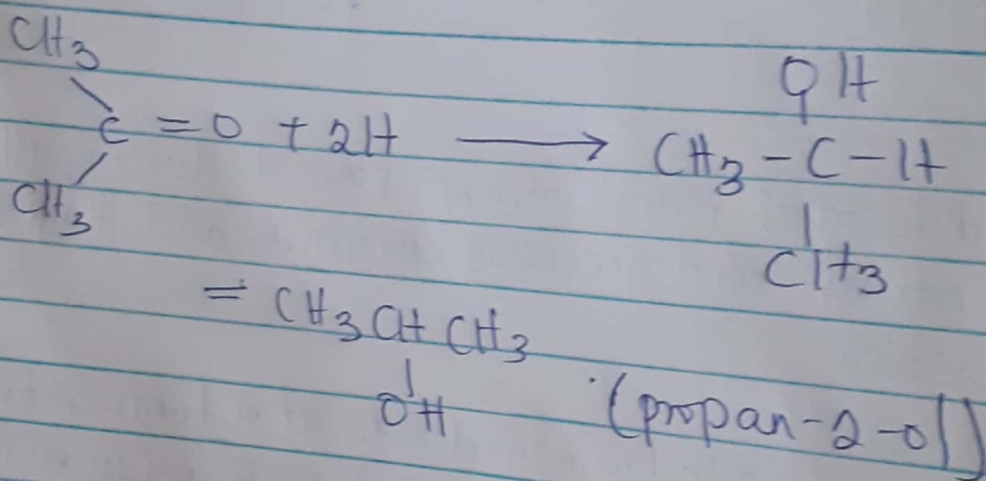 CH3
OH
C = O + 2H ⟶ CH3 - C - H
CH3
CH3
= CH3CHCH3
OH
(propan-2-ol)